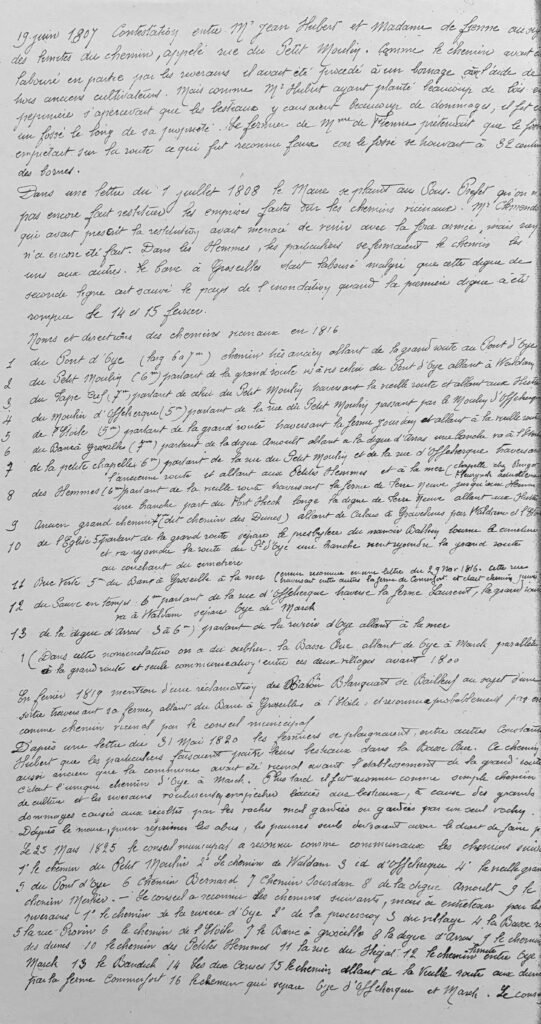 19 juin 1807 Contestation entre Mr Jean Hubert et Madame de Fienne au suj
des limites du chemin, appelé rue du Petit Moulin. Comme le chemin avait
labouré en partie par les riverains il avait été procédé à un bornage à l'aide de
trois anciens cultivateurs. Mais comme Mr Hubert ayant planté beaucoup de bois en
pépinière s'apercevait que les bestiaux y causaient beaucoup de dommages, il fit
un fossé le long de sa propriété. Le fermier de Mme de Fienne prétendait que le fossé
empiétait sur la route ce qui fut reconnu faux car le fossé se trouvait à 32 cent
des bornes.
Dans une lettre du 1 juillet 1808 le Maire se plaint au Sous-Préfet qu'on n'
pas encore fait restituer les emprises faites sur les chemins vicinaux. Mr
qui avait prescrit la restitution avait menacé de venir avec la force armée, mais rien
n'a encore été fait. Dans les Hemmes, les particuliers se fermaient le chemin les
uns aux autres. Le banc à Groseilles était labouré malgré que cette digue de
seconde ligne ait sauvé le pays de l'inondation quand la première digue a été
rompue le 14 et 15 février.
Noms et directions des chemins vicinaux en 1816
1 du Pont d'Oye (larg 6 a 7m) chemin très ancien allant de la grand route au Pont d'Oye
2 du Petit Moulin (6m) partant de la grand route vis à vis celui du Pont d'Oye allant à Waldam
3 du Pape (7m) partant de celui du Petit Moulin traversant la vieille route et allant aux
4 du Moulin d'Offekerque (5m) partant de la rue du Petit Moulin passant par le Moulin d'Offekerque
5 de l'Etoile (5m) partant de la grand route traversant la ferme Jourdan et allant à la vieille route
6 du Banc à Groseilles (7m) partant de la digue Amoult allant à la digue d'Arras une branche va à l'
7 de la petite chapelle (6m) partant de la rue du Petit Moulin et de la rue d'Offekerque traversant
l'ancienne route et allant aux Petites Hemmes et à la mer (chapelle chez
8 des Hemmes (6m) partant de la vieille route traversant la ferme de Terre Neuve jusqu'aux Hemmes
une branche part du Fort longe la digue de Terre Neuve allant aux
9 Ancien grand chemin (dit chemin des Dunes) allant de Calais à Gravelines par Waldam et l'
10 de l'Eglise 5 partant de la grand route sépare le presbytère du manoir tourne le cimetière
et va rejoindre la route du Pt d'Oye une branche vient rejoindre la grand route
au couchant du cimetière
11 Rue Verte 5m du Banc à Groseille à la mer (encore reconnue en une lettre du 29 Nov 1816. cette rue
traversait entre autres la ferme de Commerfort et était chemin
12 du Sauve en temps 6m partant de la rue d'Offekerque traverse la ferme Laurent, la grand route
va à Waldam sépare Oye de March
13 de la digue d'Arras 3 à 6m) partant de la rivière d'Oye allant à la mer
! (Dans cette nomenclature on a du oublier la Basse Rue allant de Oye à March parallèle
à la grand route et seule communication entre ces deux villages avant 1800
En février 1819 mention d'une réclamation du Baron Blanquart de Bailleul au sujet d'une
sortie traversant sa ferme, allant du Banc à Groseilles à l'Etoile, et reconnue probablement pas en
comme chemin vicinal par le conseil municipal
D'après une lettre du 31 Mai 1820 les fermiers se plaignaient, entre autres Constant
Hubert que les particuliers faisaient paître leurs bestiaux dans la Basse Rue. Ce chemin
aussi ancien que la commune avait été vicinal avant l'établissement de la grand route
c'était l'unique chemin d'Oye à March. Plus tard il fut reconnu comme simple chemin
de culture et les riverains voulurent en empêcher l'accès aux bestiaux, à cause des grands
dommages causés aux récoltes par les vaches mal gardées ou gardées par un seul vacher.
D'après le maire, pour réprimer les abus, les pauvres seuls devraient avoir le droit de faire p
Le 23 Mars 1825 le conseil municipal a reconnu comme communaux les chemins suiv
1° le chemin du Petit Moulin 2° Le chemin de Waldam 3 id d'Offekerque 4° la vieille grand
5 du Pont d'Oye 6 Chemin Bernard 7 Chemin Jourdan 8 de la digue Amoult 9 le
chemin Mestier. — Le conseil a reconnu les chemins suivants, mais à entretenir par les
riverains 1° le chemin de la rivière d'Oye 2° de la procession 3 du village 4 la Basse r
5 la rue Provin 6 le chemin de l'Etoile 7 le Banc à groseille 8 la digue d'Arras 9 le chemin
des dunes 10 le chemin des Petites Hemmes 11 la rue du 12 le chemin limite entre Oye
March 13 le 14 des Cerises 15 le chemin allant de la Vieille route aux dunes
par la ferme Commerfort 16 le chemin qui sépare Oye d'Offekerque et March. Le cons